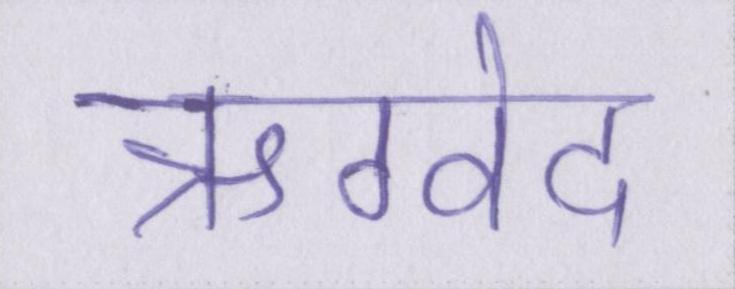 ऋग्वेद